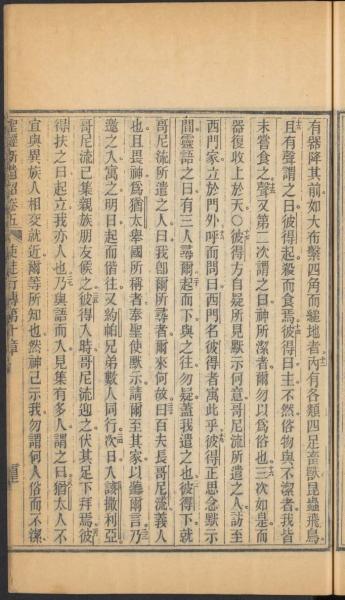 有器降其前如大布繫四角而縋地者內有各類四足畜獸昆蟲飛鳥
且有聲謂之曰彼得起殺而食焉彼得曰主不然俗物與不潔者我皆
未嘗食之聲又第二次謂之曰神所潔者爾勿以爲俗也三次如是而
器復收上於天○彼得方自疑所見默示何意哥尼流所遣之人訪至
西門家立於門外呼而問曰西門名彼得者寓此乎彼得正思念默示
間靈語之曰有三人尋爾起而下與之往勿疑蓋我遣之也彼得下就
哥尼流所遣之人曰我卽爾所尋者爾來何故曰百夫長哥尼流義人
也且畏神爲猶太舉國所稱者奉聖使默示請爾至其家以聽爾言乃
邀之入寓之明日起而偕往又約帕兄弟數人同行次日入該撒利亞
哥尼流已集親族朋友候之彼得入時哥尼流迎之伏其足下拜焉彼
得扶之曰起立我亦人也乃與語而入見集有多人謂之曰猶太人不
宜與異族人相交就近爾等所知也然神已示我勿謂何人俗而不潔
聖經新遺詔卷五 使徒行傳第十章